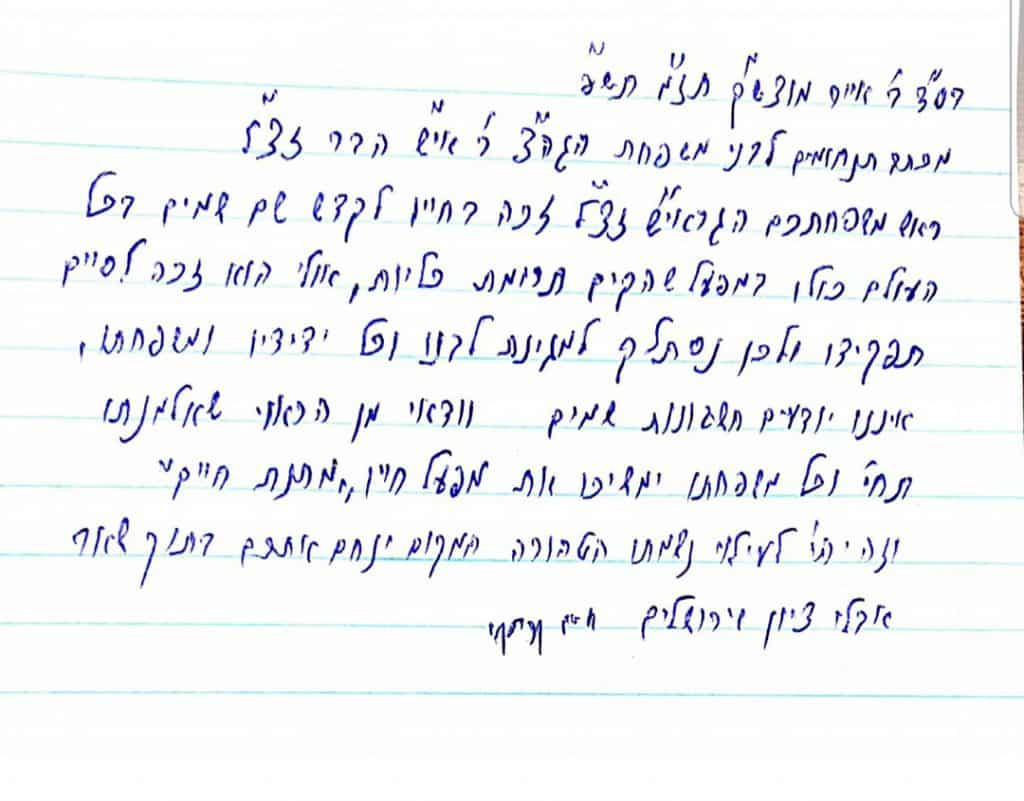 בס"ד ר' אייר מוצש"ק תזו"מ תש"פ
מכתב תנחומים לבני משפחת הגה"צ ר' אי"ש הבר זצ"ל
ראש משפחתכם הגראי"ש זצ"ל זכה בחייו לקדש שם שמים בכל
העולם כולו במפעל שהקים תרומת כליות, אולי הוא זכה לסיים
תפקידו ולכן נסתלק למגינת לבנו וכל ידידיו ומשפחתו,
איננו יודעים חשבונות שמים וודאי מן הראוי שאלמנתו
תחי' וכל משפחתו ימשיכו את מפעל חייו „מתנת חיים"
וזה יהי' לעילוי נשמתו הטהורה המקום ינחם אתכם בתוך שאר
אבלי ציון וירושלים חיים קניבסקי